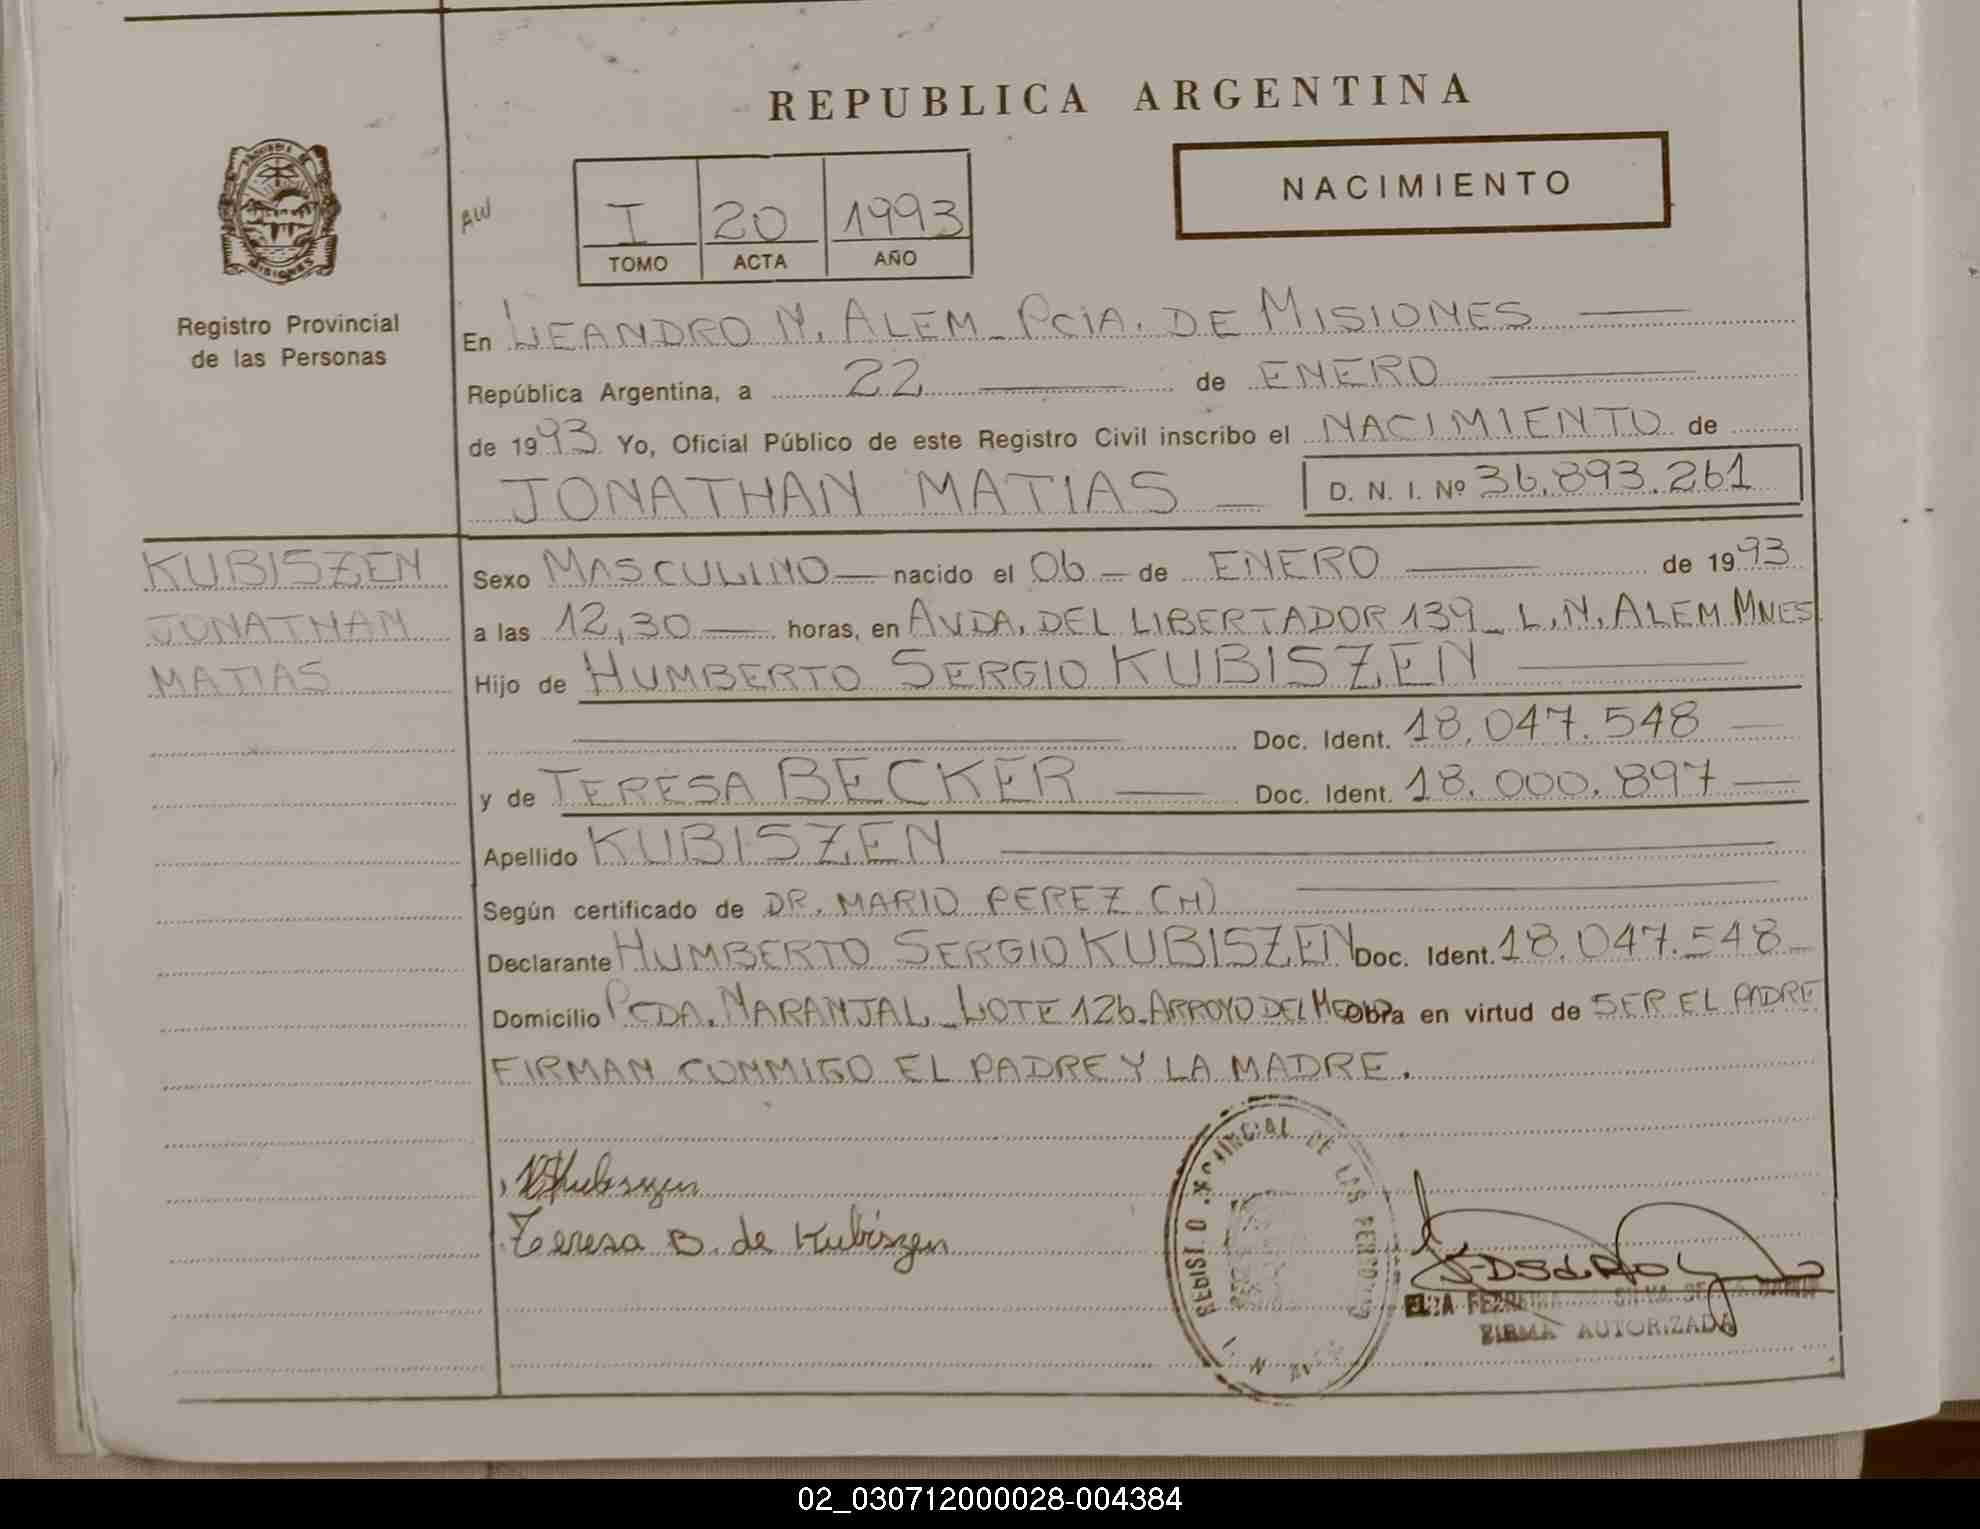 REPUBLICA ARGENTINA
NACIMIENTO
AW
I 20 1993
TOMO ACTA AÑO
MISIONES
Registro Provincial
de las Personas
En LEANDRO N. ALEM - PCIA. DE MISIONES
República Argentina, a 22 de ENERO
de 1993 Yo, Oficial Público de este Registro Civil inscribo el NACIMIENTO de
JONATHAN MATIAS D. N. I. Nº 36.893.261
KUBISZEN
JONATHAN
MATIAS
Sexo MASCULINO nacido el 06 de ENERO de 1993
a las 12,30 horas, en AVDA. DEL LIBERTADOR 139 - L.N. ALEM MNES
Hijo de HUMBERTO SERGIO KUBISZEN
Doc. Ident. 18.047.548
y de TERESA BECKER Doc. Ident. 18.000.897
Apellido KUBISZEN
Según certificado de DR. MARIO PEREZ (H)
Declarante HUMBERTO SERGIO KUBISZEN Doc. Ident. 18.047.548
Domicilio PCDA. NARANJAL - LOTE 126 - ARROYO DEL MEDIO Obra en virtud de SER EL PADRE
FIRMAN CONMIGO EL PADRE Y LA MADRE.
Kubiszen
Teresa B. de Kubiszen
REGISTRO PROVINCIAL DE LAS PERSONAS
FIRMA AUTORIZADA
02_030712000028-004384